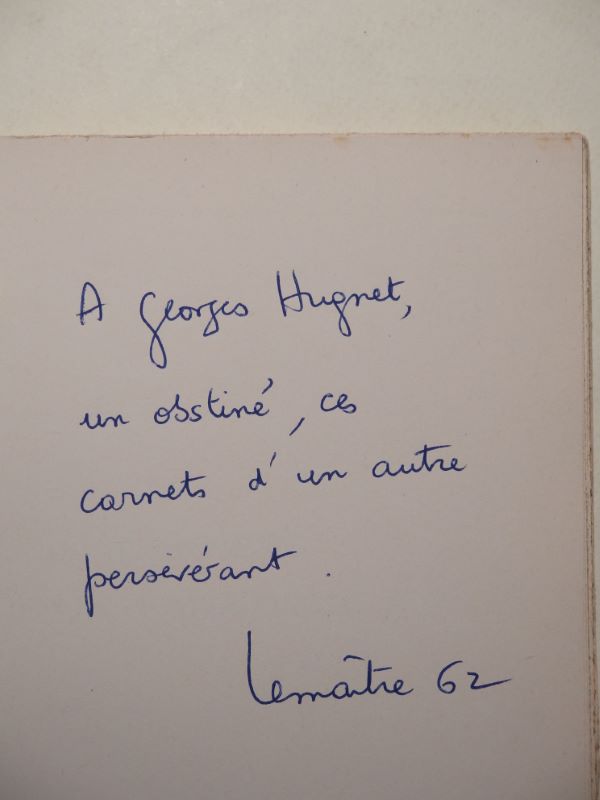 A Georges Hugnet,
un obstiné, ces
carnets d'un autre
persévérant.
Lemaître 62